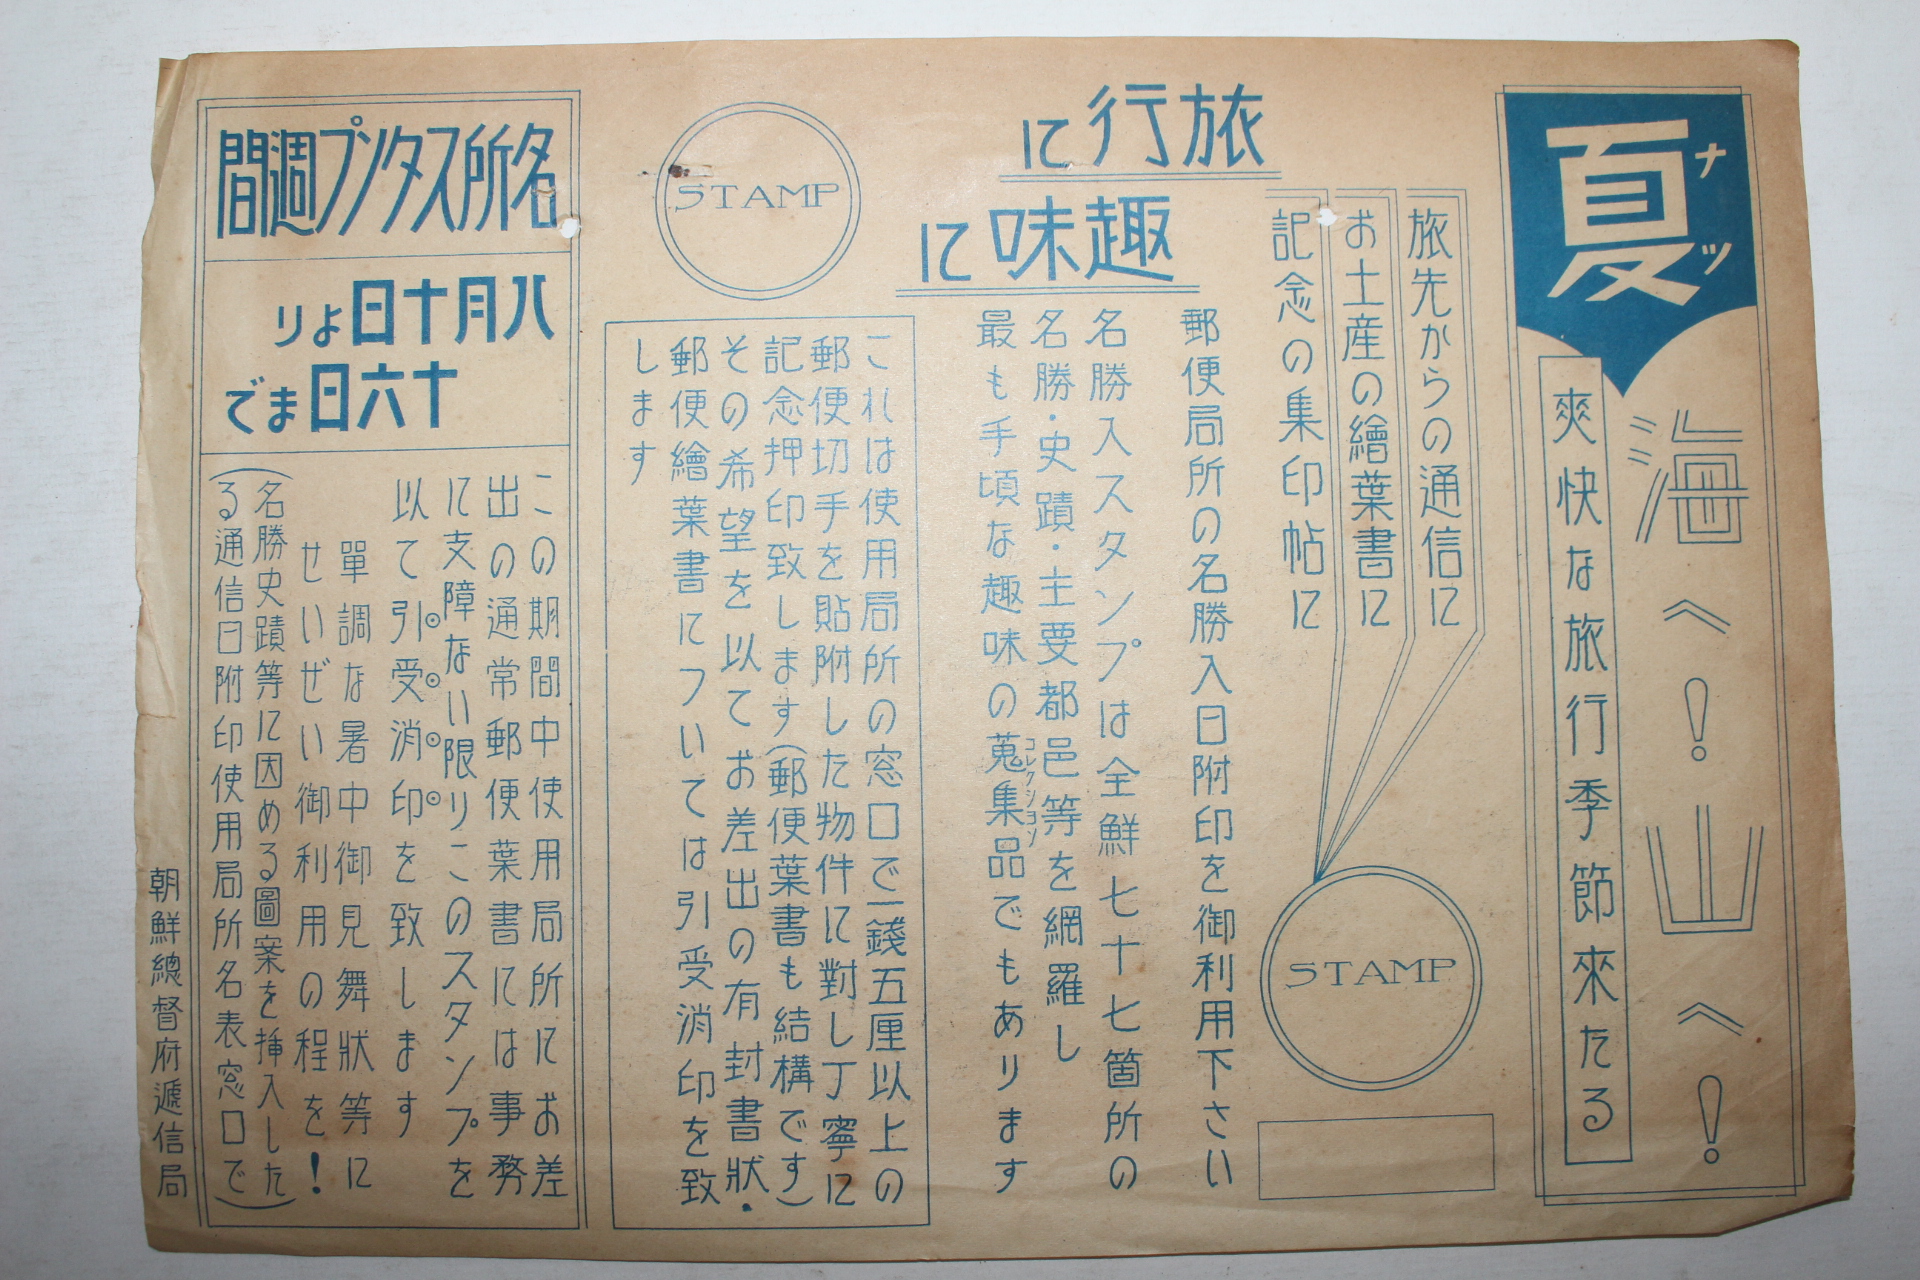 夏
ナツ
海へ！山へ！
爽快な旅行季節來たる
旅行に
趣味に
旅先からの通信に
お土産の繪葉書に
記念の集印帖に
STAMP
郵便局所の名勝入日附印を御利用下さい
名勝入スタンプは全鮮七十七箇所の
名勝・史蹟・主要都邑等を網羅し
最も手頃な趣味の蒐集品でもあります
コレクシヨン
STAMP
これは使用局所の窓口で一錢五厘以上の
郵便切手を貼附した物件に對し丁寧に
記念押印致します(郵便葉書も結構です)
その希望を以てお差出の有封書狀・
郵便繪葉書については引受消印を致
します
名所スタンプ週間
八月十日より
十六日まで
この期間中使用局所にお差
出の通常郵便葉書には事務
に支障ない限りこのスタンプを
以て引受消印を致します
單調な暑中御見舞狀等に
せいぜい御利用の程を！
(名勝史蹟等に因める圖案を挿入した
る通信日附印使用局所名表窓口で)
朝鮮總督府遞信局